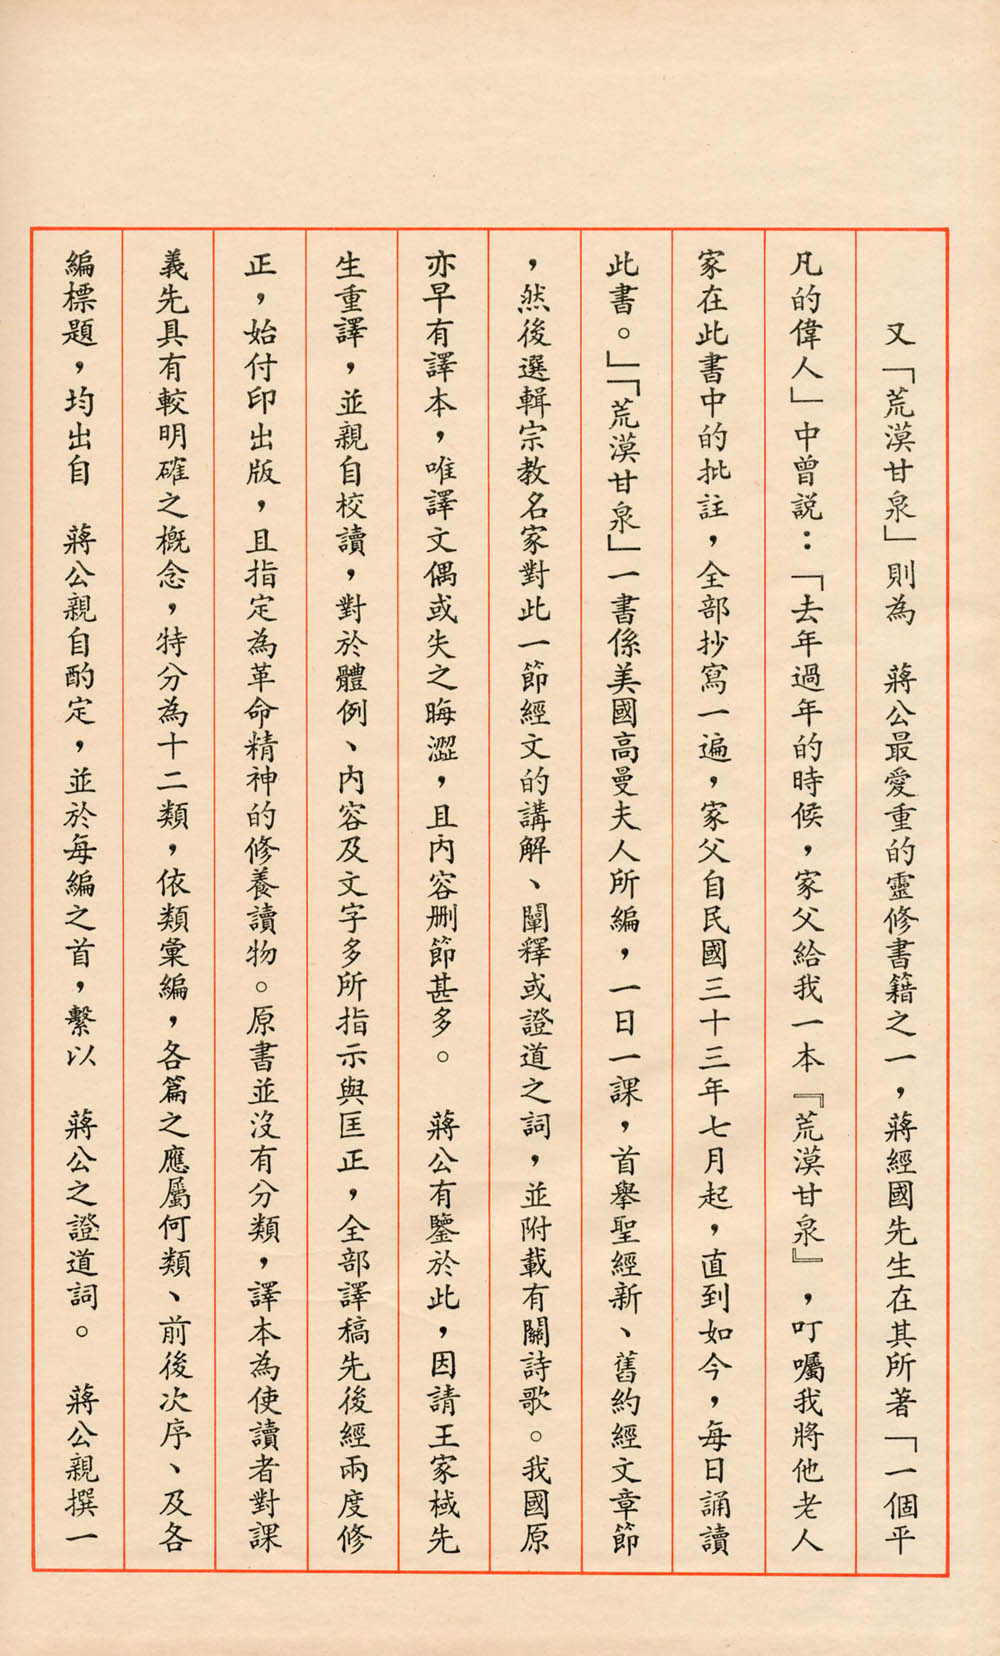 又「荒漠甘泉」則為　蔣公最愛重的靈修書籍之一，蔣經國先生在其所著「一個平
凡的偉人」中曾説：「去年過年的時候，家父給我一本『荒漠甘泉』，叮囑我將他老人
家在此書中的批註，全部抄寫一遍，家父自民國三十三年七月起，直到如今，每日誦讀
此書。」「荒漠甘泉」一書係美國高曼夫人所編，一日一課，首舉聖經新、舊約經文章節
，然後選輯宗教名家對此一節經文的講解、闡釋或證道之詞，並附載有關詩歌。我國原
亦早有譯本，唯譯文偶或失之晦澀，且內容刪節甚多。　蔣公有鑒於此，因請王家棫先
生重譯，並親自校讀，對於體例、內容及文字多所指示與匡正，全部譯稿先後經兩度修
正，始付印出版，且指定為革命精神的修養讀物。原書並沒有分類，譯本為使讀者對課
義先具有較明確之概念，特分為十二類，依類彙編，各篇之應屬何類、前後次序、及各
編標題，均出自　蔣公親自酌定，並於每編之首，繫以　蔣公之證道詞。　蔣公親撰一